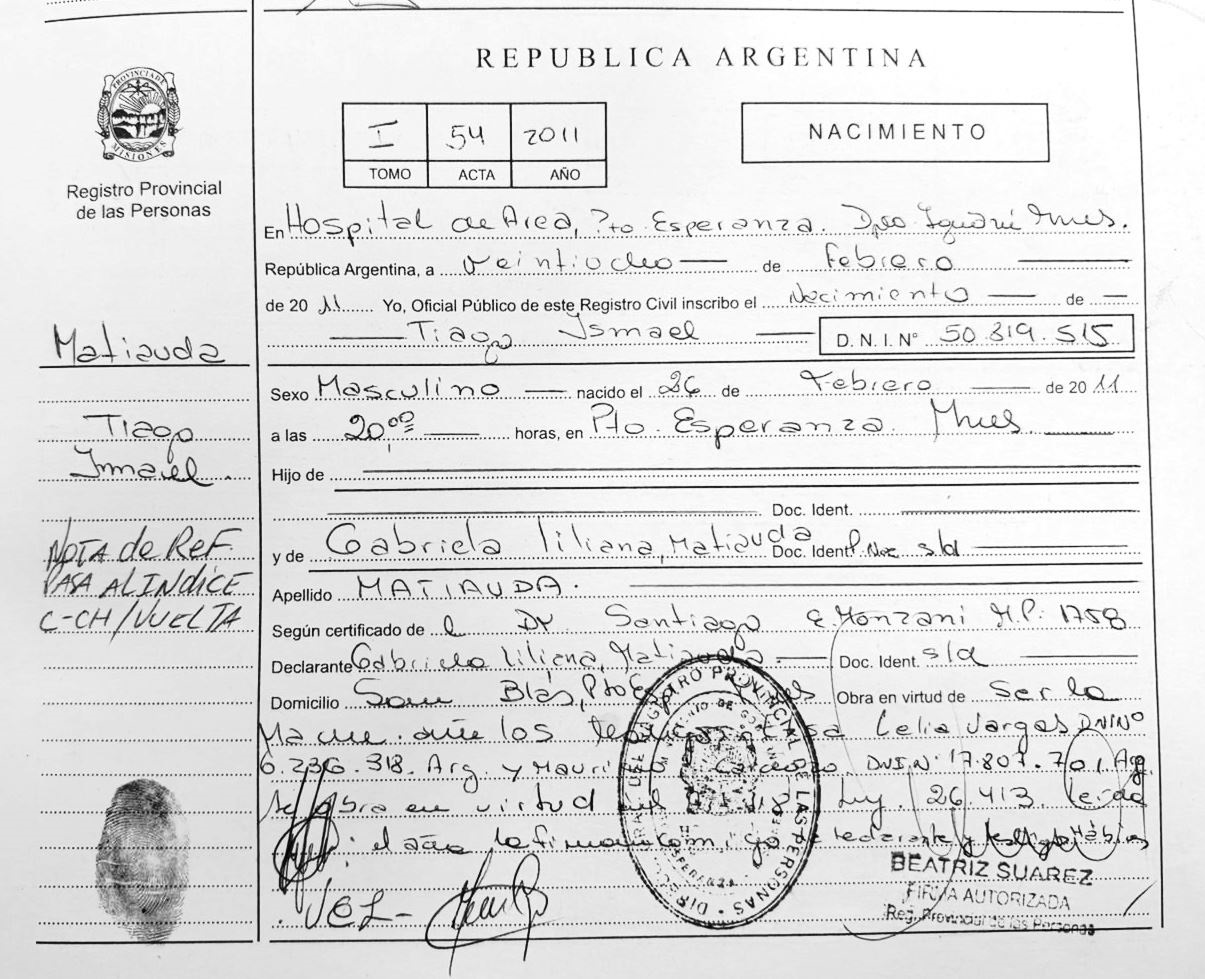 REPUBLICA ARGENTINA
PROVINCIA DE
MISIONES
Registro Provincial
de las Personas
I 54 2011
TOMO ACTA AÑO
NACIMIENTO
En Hospital de Area, Pto. Esperanza. Dpto Iguazú Mnes.
República Argentina, a veintiocho de Febrero
de 2011 Yo, Oficial Público de este Registro Civil inscribo el Nacimiento de
Tiago Ismael D.N.I.Nº 50.819.515
Matiauda
Tiago
Ismael.
NOTA de ReF.
PASA AL INDICE
C-CH/VUELTA
Sexo Masculino nacido el 26 de Febrero de 2011
a las 20,00 horas, en Pto. Esperanza. Mnes.
Hijo de
Doc. Ident.
y de Gabriela liliana, Matiauda Doc. Ident. s/d
Apellido MATIAUDA.
Según certificado de l Dr. Santiago E. Monzani M.P: 1758
Declarante Gabriela liliana, Matiauda Doc. Ident. s/d
Domicilio San Blás, Pto Obra en virtud de Ser la
Madre. los Celia Vargas DNINº
6.236.318. Arg. y DNI.Nº 17.807.701 Arg.
obra en virtud Ley. 26.413
el año
DEL REGISTRO PROVINCIAL DE LAS PERSONAS
BEATRIZ SUAREZ
FIRMA AUTORIZADA
Reg. Provincial de las Personas